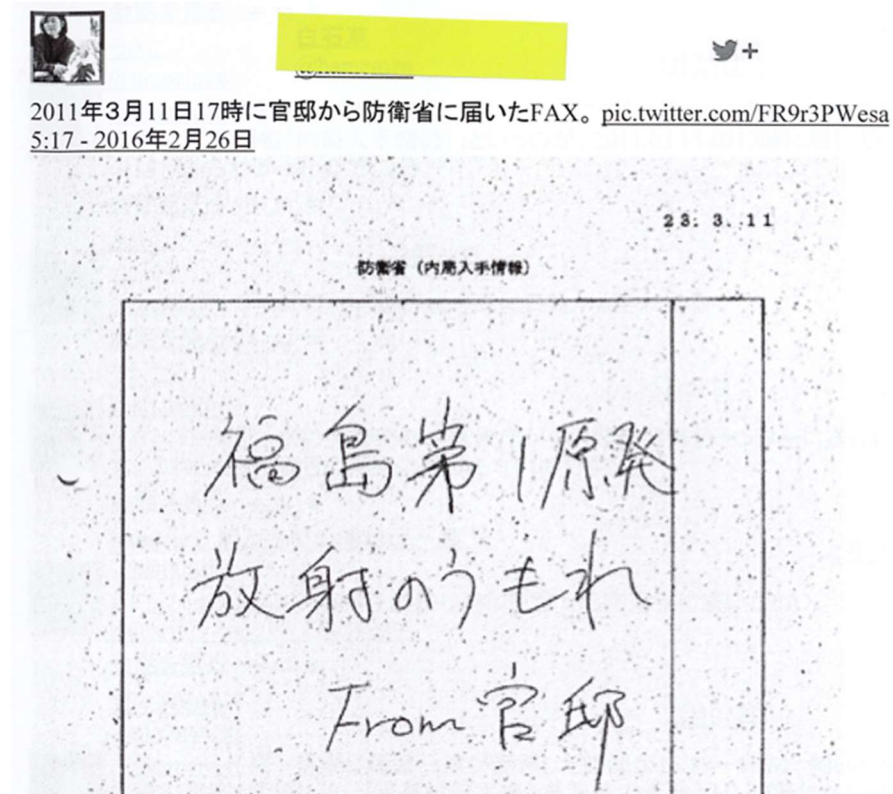 2011年3月11日17時に官邸から防衛省に届いたFAX。 pic.twitter.com/FR9r3PWesa
5:17 - 2016年2月26日
23. 3. 11
防衛省（内局入手情報）
福島第1原発
放射のうもれ
From 官邸